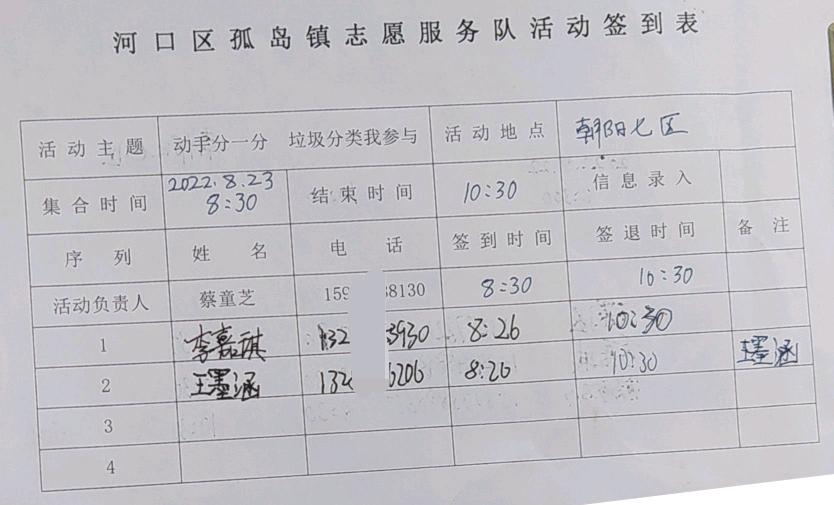 河口区孤岛镇志愿服务队活动签到表
活动主题 动手分一分 垃圾分类我参与 活动地点 朝阳七区
集合时间 2022.8.23 8:30 结束时间 10:30 信息录入
序列 姓名 电话 签到时间 签退时间 备注
活动负责人 蔡童芝 159 38130 8:30 10:30
1 李嘉祺 132 3930 8:26 10:30
2 王墨涵 132 6206 8:26 10:30 王墨涵
3
4